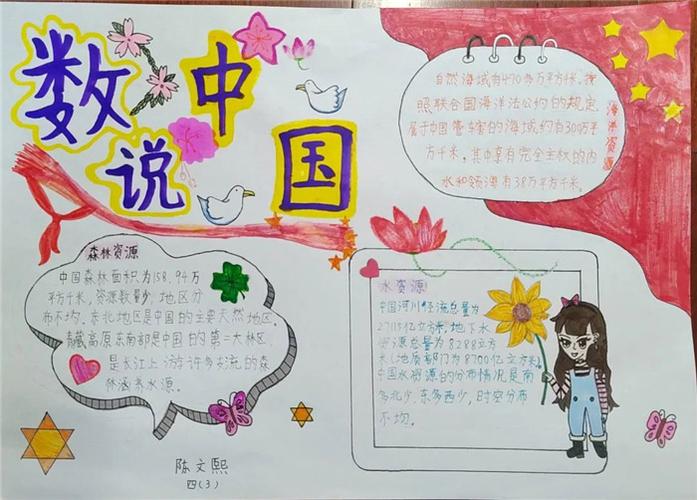 数说中国
自然海域有470多万平方米。按
照联合国海洋法公约的规定
属于中国管辖的海域约有300万平
方千米，其中享有完全主权的内
水和领海有38万平方千米。
海洋资源
森林资源
中国森林面积为158.94万
平方千米，资源数量少，地区分
布不均。东北地区是中国的主要天然地区。
青藏高原东南部是中国的第二大林区
是长江上游许多支流的森
林涵养水源。
水资源
中国河川径流总量为
27115亿立方米，地下水
资源总量为8288立方
米（地质部门为8700亿立方米）。
中国水资源的分布情况是南
多北少，东多西少，时空分布
不均。
陈文熙
四（3）